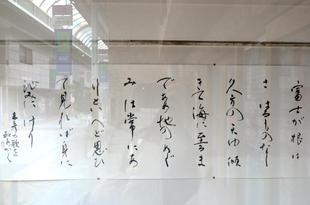 富士が根は
さはるものなし
久方の天ゆ傾
きて海に至るま
で天地のめぐ
みは常にあ
りといへど思ひ
て見れば身に
沁みにけり